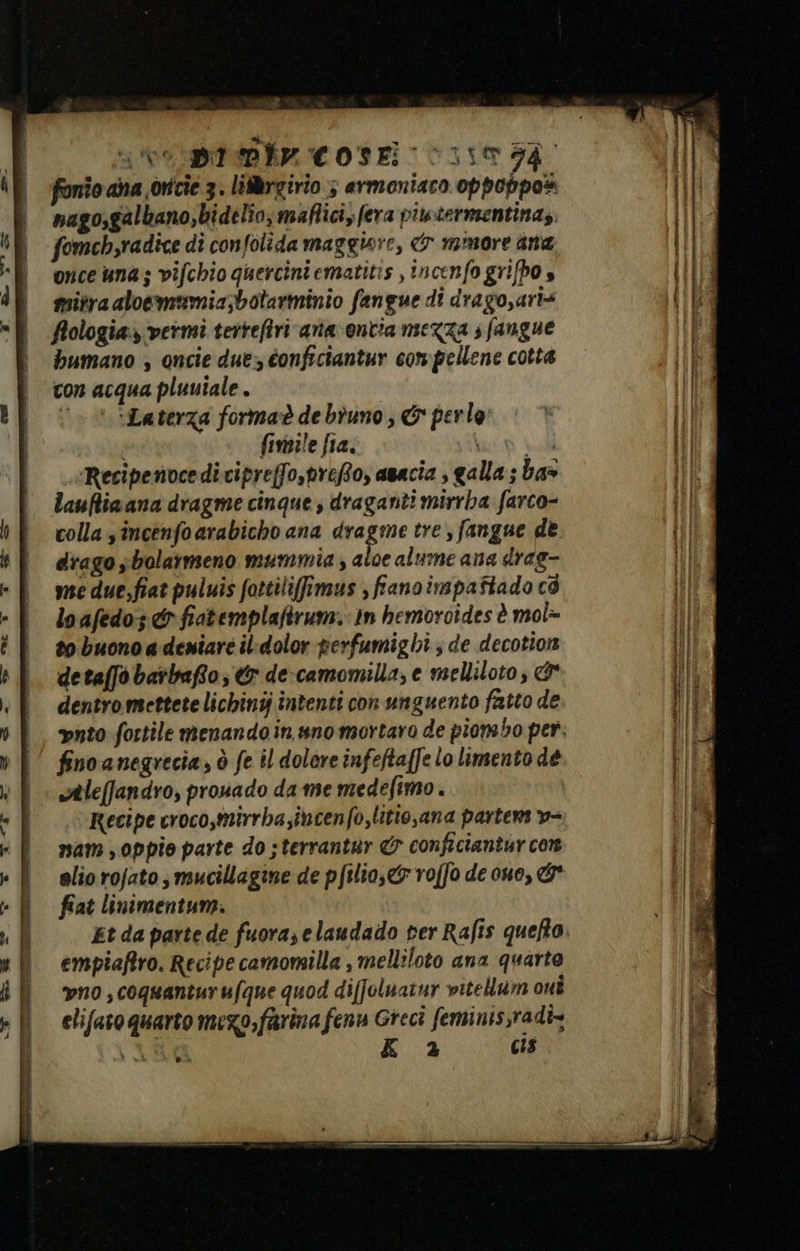 DI DIV. COSE. 74
ſonio ana oncie 3. litargirio; armoniaco oppopo=
nago, galbano, bidelio, maſtici, ſera piu termentina,
ſomch, radice di conſolida maggiore, & minore ana
once una; viſchio quercini ematitis, incenſo griſpo,
mirra aloe mumia, bolarminio ſangue di drago, ari=
ſtologia, vermi terreſtri ana oncia mezza, ſangue
humano, oncie due, conficiantur com pellene cotta
con acqua pluuiale.
La terza forma è de bruno, & per lo
ſimile ſia.
Recipe noce di cipreſſo, preſſo, acacia, galla; ba=
lauſtia ana dragme cinque, draganti mirrha ſarco-
colla, incenſo arabicho ana dragme tre, ſangue de
drago, bolarmeno mummia, aloe alume ana drag-
me due, fiat puluis ſottiliſſimus, ſiano impaſtado cō
lo aſedo; & fiat emplaſtrum. In hemoroides è mol=
to buono a deniare il dolor perfumighi, de decotion
de taſſo barbaſſo, & de camomilla, e melliloto, &
dentro mettete lichinij intenti con unguento fatto de
vnto ſottile menando in uno mortaro de piombo per
fino a negrecia, ò ſe il dolore infeſtaſſe lo limento de
Aleſſandro, prouado da me medeſimo.
Recipe croco, mirrha, incenſo, litio, ana partem v=
nam, oppio parte do; terrantur & conficiantur com
olio roſato, mucillagine de pſilio, & roſſo de ouo, &
fiat linimentum.
Et da parte de fuora, e laudado per Raſis queſto
empiaſtro. Recipe camomilla, melliloto ana quarto
vno, coquantur uſque quod diſſoluatur vitellum oui
eliſato quarto mezo, farina fenu Greci ſeminis, radi=
K 2 cis